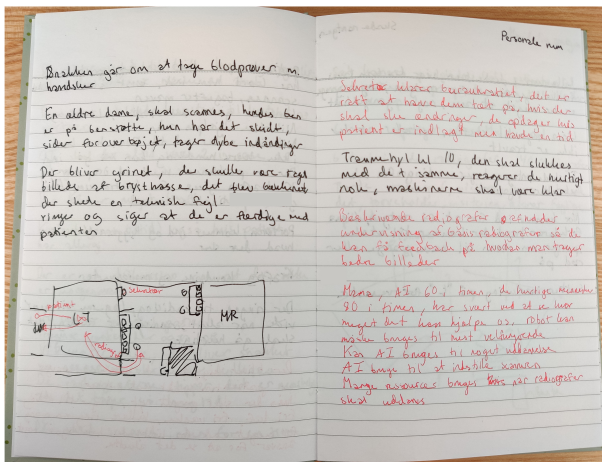 Snakken går om at tage blodprøver m.
handsker
En ældre dame, skal scannes, hendes ben
er på benstøtte, hun har det skidt,
sider foroverbøjet, tager dybe indåndinger
Der bliver grinet, de skulle være taget
billede af brystkasse, det blev
der skete en teknisk fejl.
ringer og siger at de er færdige med
patienten
patient
Sekretær
MR
Personale rum
Sekretær klarer beraukratiet, det er
rart at have dem tæt på, hvis der
skal ske ændringer, de opdager hvis
patient er indlagt men havde en tid
Traume hyl kl 10, den skal slukkes
med det samme, reagerer de hurtigt
nok, maskinerne skal være klar
Beskrivende radiografer
undervisning af basis radiografer så de
kan få feedback på hvordan man tager
bedre billeder
AI 60 i timen, de hurtige
90 i timen, har svært ved at se hvor
meget det kan hjælpe os, robot kan
måske bruges til mest velfungerende
Kan AI bruges til noget uddannelse
AI bruge til at indstille scanneren
Mange resources bruges når radiografer
skal uddannes